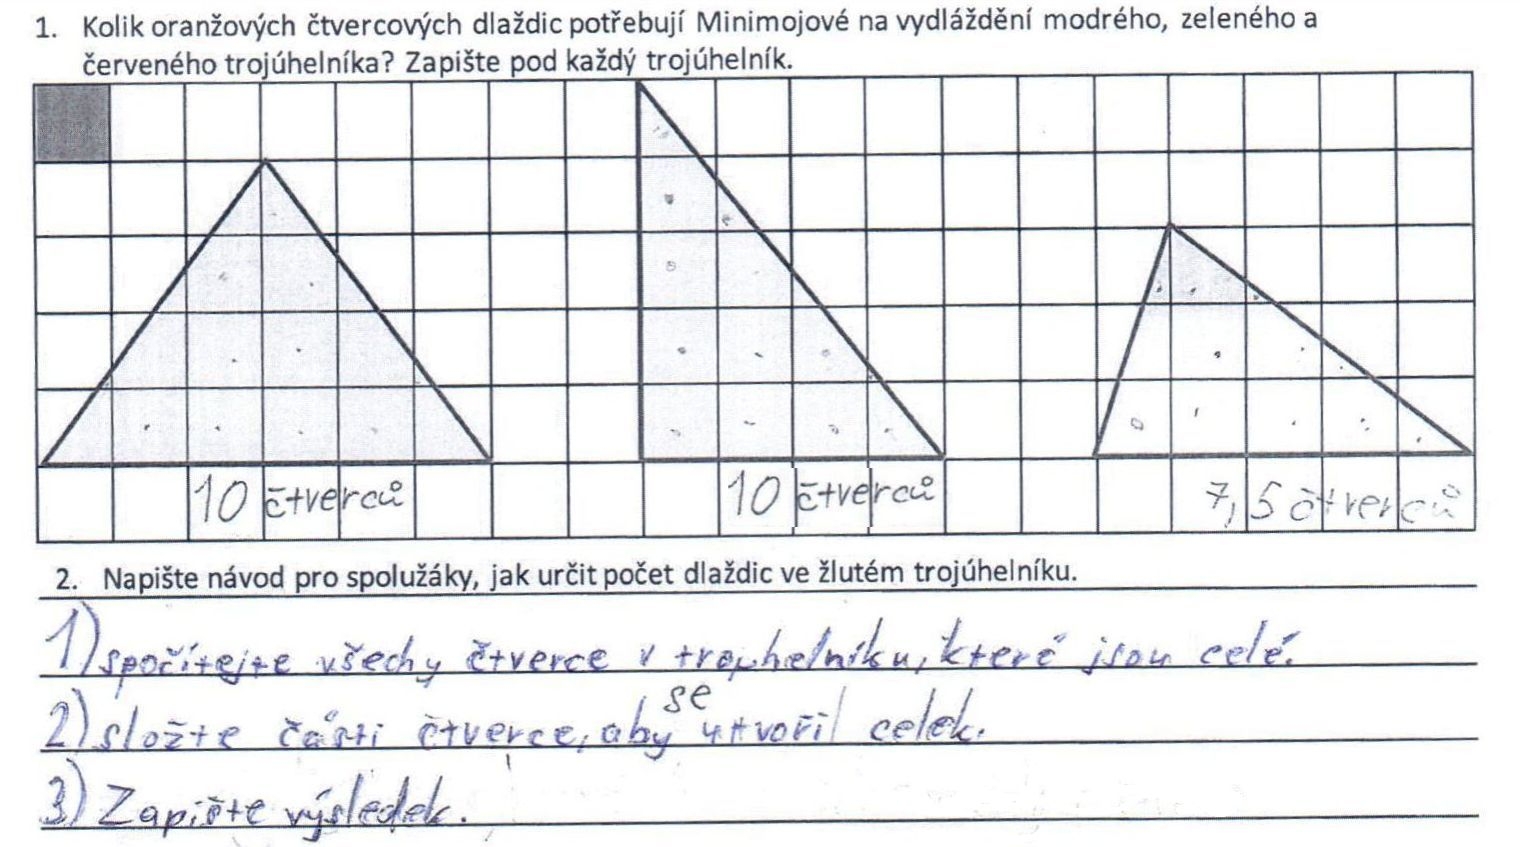 1. Kolik oranžových čtvercových dlaždic potřebují Minimojové na vydláždění modrého, zeleného a
červeného trojúhelníka? Zapište pod každý trojúhelník.
10 čtverců 10 čtverců 7,5 čtverců
2. Napište návod pro spolužáky, jak určit počet dlaždic ve žlutém trojúhelníku.
1) spočítejte všechy čtverce v
které jsou celé.
2) složte části čtverce, aby se utvořil celek.
3) Zapište výsledek.